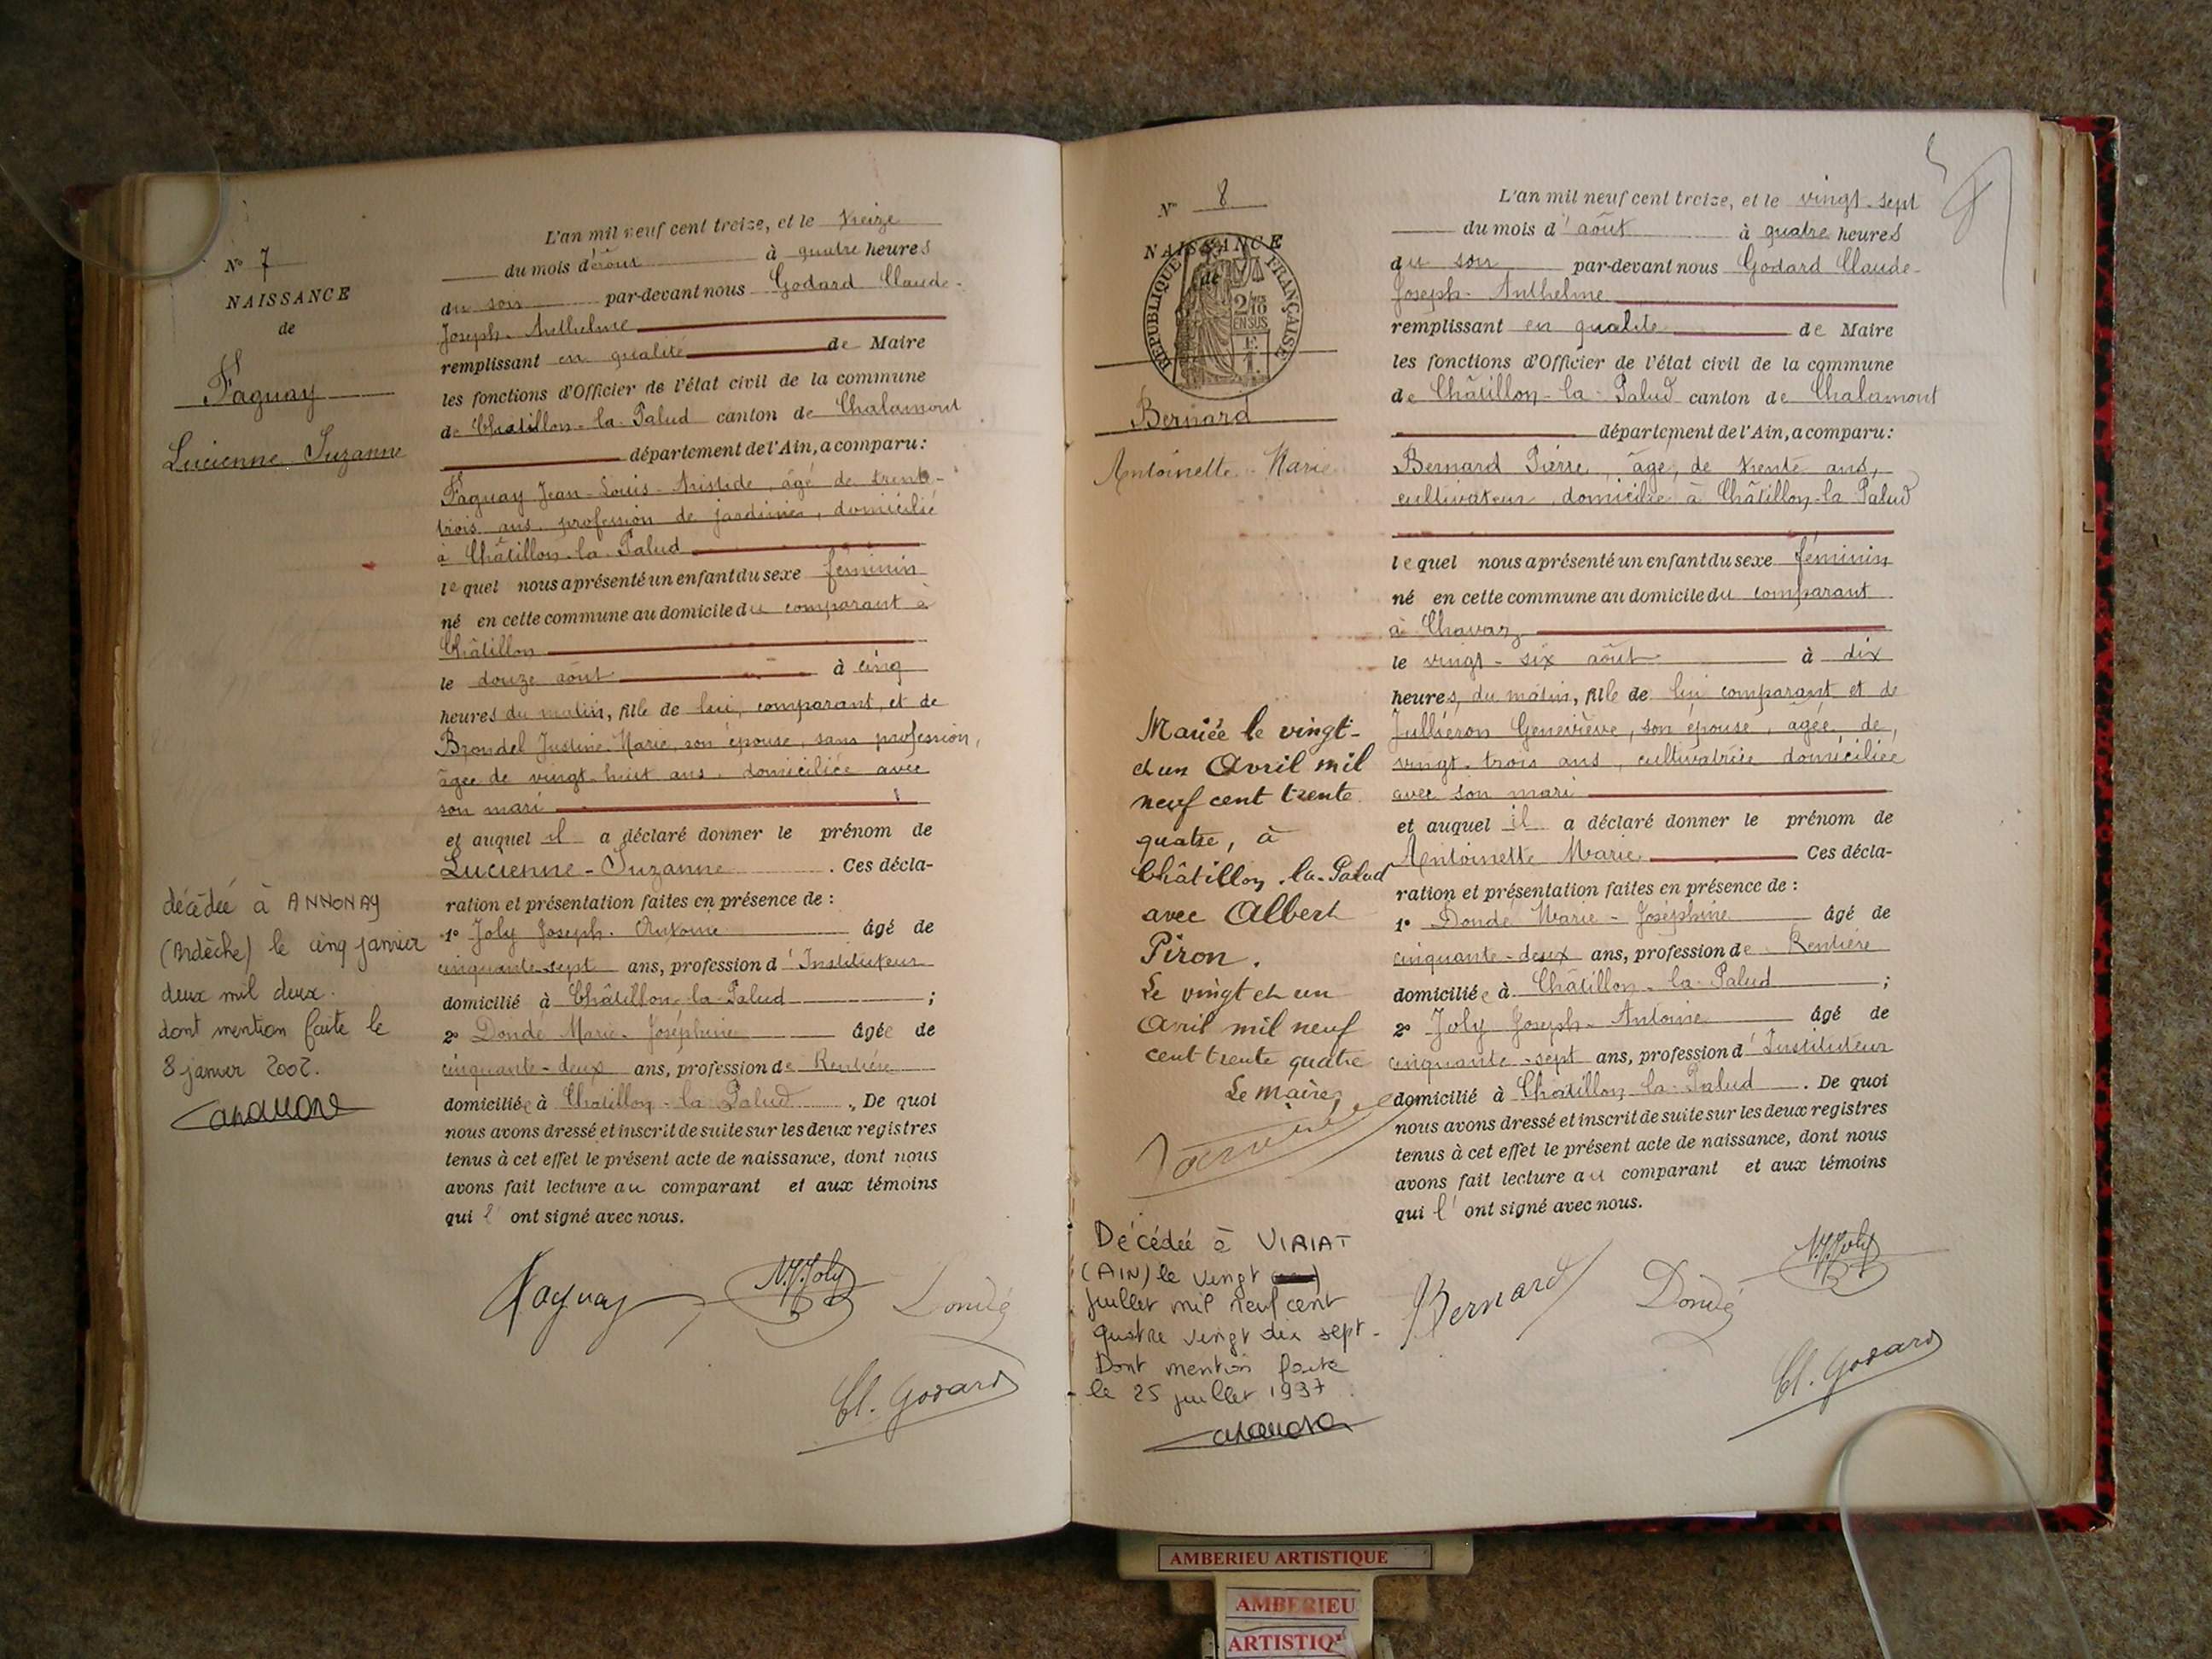 N° 7
NAISSANCE
de
Faguay
Lucienne Suzanne
décédée à ANNONAY
(Ardèche) le cinq janvier
deux mil deux.
dont mention faite le
8 janvier 2002.
L'an mil neuf cent treize, et le treize
du mois d'août à quatre heures
du soir par-devant nous Godard Claude-
Joseph-Anthelme
remplissant en qualité de Maire
les fonctions d'Officier de l'état civil de la commune
de Châtillon-la-Palud canton de Chalamont
département de l'Ain, a comparu :
Faguay Jean-Louis-Aristide, âgé de trente-
trois ans, profession de jardinier, domicilié
à Châtillon-la-Palud
lequel nous a présenté un enfant du sexe féminin
né en cette commune au domicile du comparant à
Châtillon
le douze août à cinq
heures du matin, fille de lui, comparant, et de
Brondel Justine-Marie, son épouse, sans profession,
âgée de vingt-huit ans, domiciliée avec
son mari
et auquel il a déclaré donner le prénom de
Lucienne-Suzanne. Ces décla-
ration et présentation faites en présence de :
1° Joly Joseph-Antoine âgé de
cinquante-sept ans, profession d'Instituteur
domicilié à Châtillon-la-Palud ;
2° Dondé Marie-Joséphine âgée de
cinquante-deux ans, profession de Rentière
domiciliée à Chatillon-la-Palud. De quoi
nous avons dressé et inscrit de suite sur les deux registres
tenus à cet effet le présent acte de naissance, dont nous
avons fait lecture au comparant et aux témoins
qui l'ont signé avec nous.
Faguay N.J.Joly Dondé
Cl. Godard
N° 8
NAISSANCE
de
RÉPUBLIQUE FRANÇAISE
2/10
EN SUS
Bernard
Antoinette-Marie
Mariée le vingt-
et un Avril mil
neuf cent trente
quatre, à
Châtillon-la-Palud
avec Albert
Piron.
Le vingt et un
Avril mil neuf
cent trente quatre
Le maire,
Décédée à VIRIAT
(AIN) le vingt
juillet mil neuf cent
quatre vingt dix sept.
Dont mention faite
le 25 juillet 1997
L'an mil neuf cent treize, et le vingt-sept
du mois d'août à quatre heures
du soir par-devant nous Godard Claude-
Joseph-Anthelme
remplissant en qualité de Maire
les fonctions d'Officier de l'état civil de la commune
de Châtillon-la-Palud canton de Chalamont
département de l'Ain, a comparu :
Bernard Pierre, âgé de trente ans,
cultivateur, domicilié à Châtillon-la-Palud
lequel nous a présenté un enfant du sexe féminin
né en cette commune au domicile du comparant
à Chavaz
le vingt-six août à dix
heures du matin, fille de lui comparant et de
Jullieron Geneviève, son épouse, agée de,
vingt-trois ans, cultivatrice domiciliée
avec son mari
et auquel il a déclaré donner le prénom de
Antoinette Marie Ces décla-
ration et présentation faites en présence de :
1° Dondé Marie-Joséphine âgé de
cinquante-deux ans, profession de Rentière
domiciliée à Châtillon-la-Palud ;
2° Joly Joseph-Antoine âgé de
cinquante-sept ans, profession d'Instituteur
domicilié à Chatillon-la-Palud. De quoi
nous avons dressé et inscrit de suite sur les deux registres
tenus à cet effet le présent acte de naissance, dont nous
avons fait lecture au comparant et aux témoins
qui l'ont signé avec nous.
Bernard Dondé N.J.Joly
Cl. Godard
AMBERIEU ARTISTIQUE
AMBERIEU
ARTISTIQ